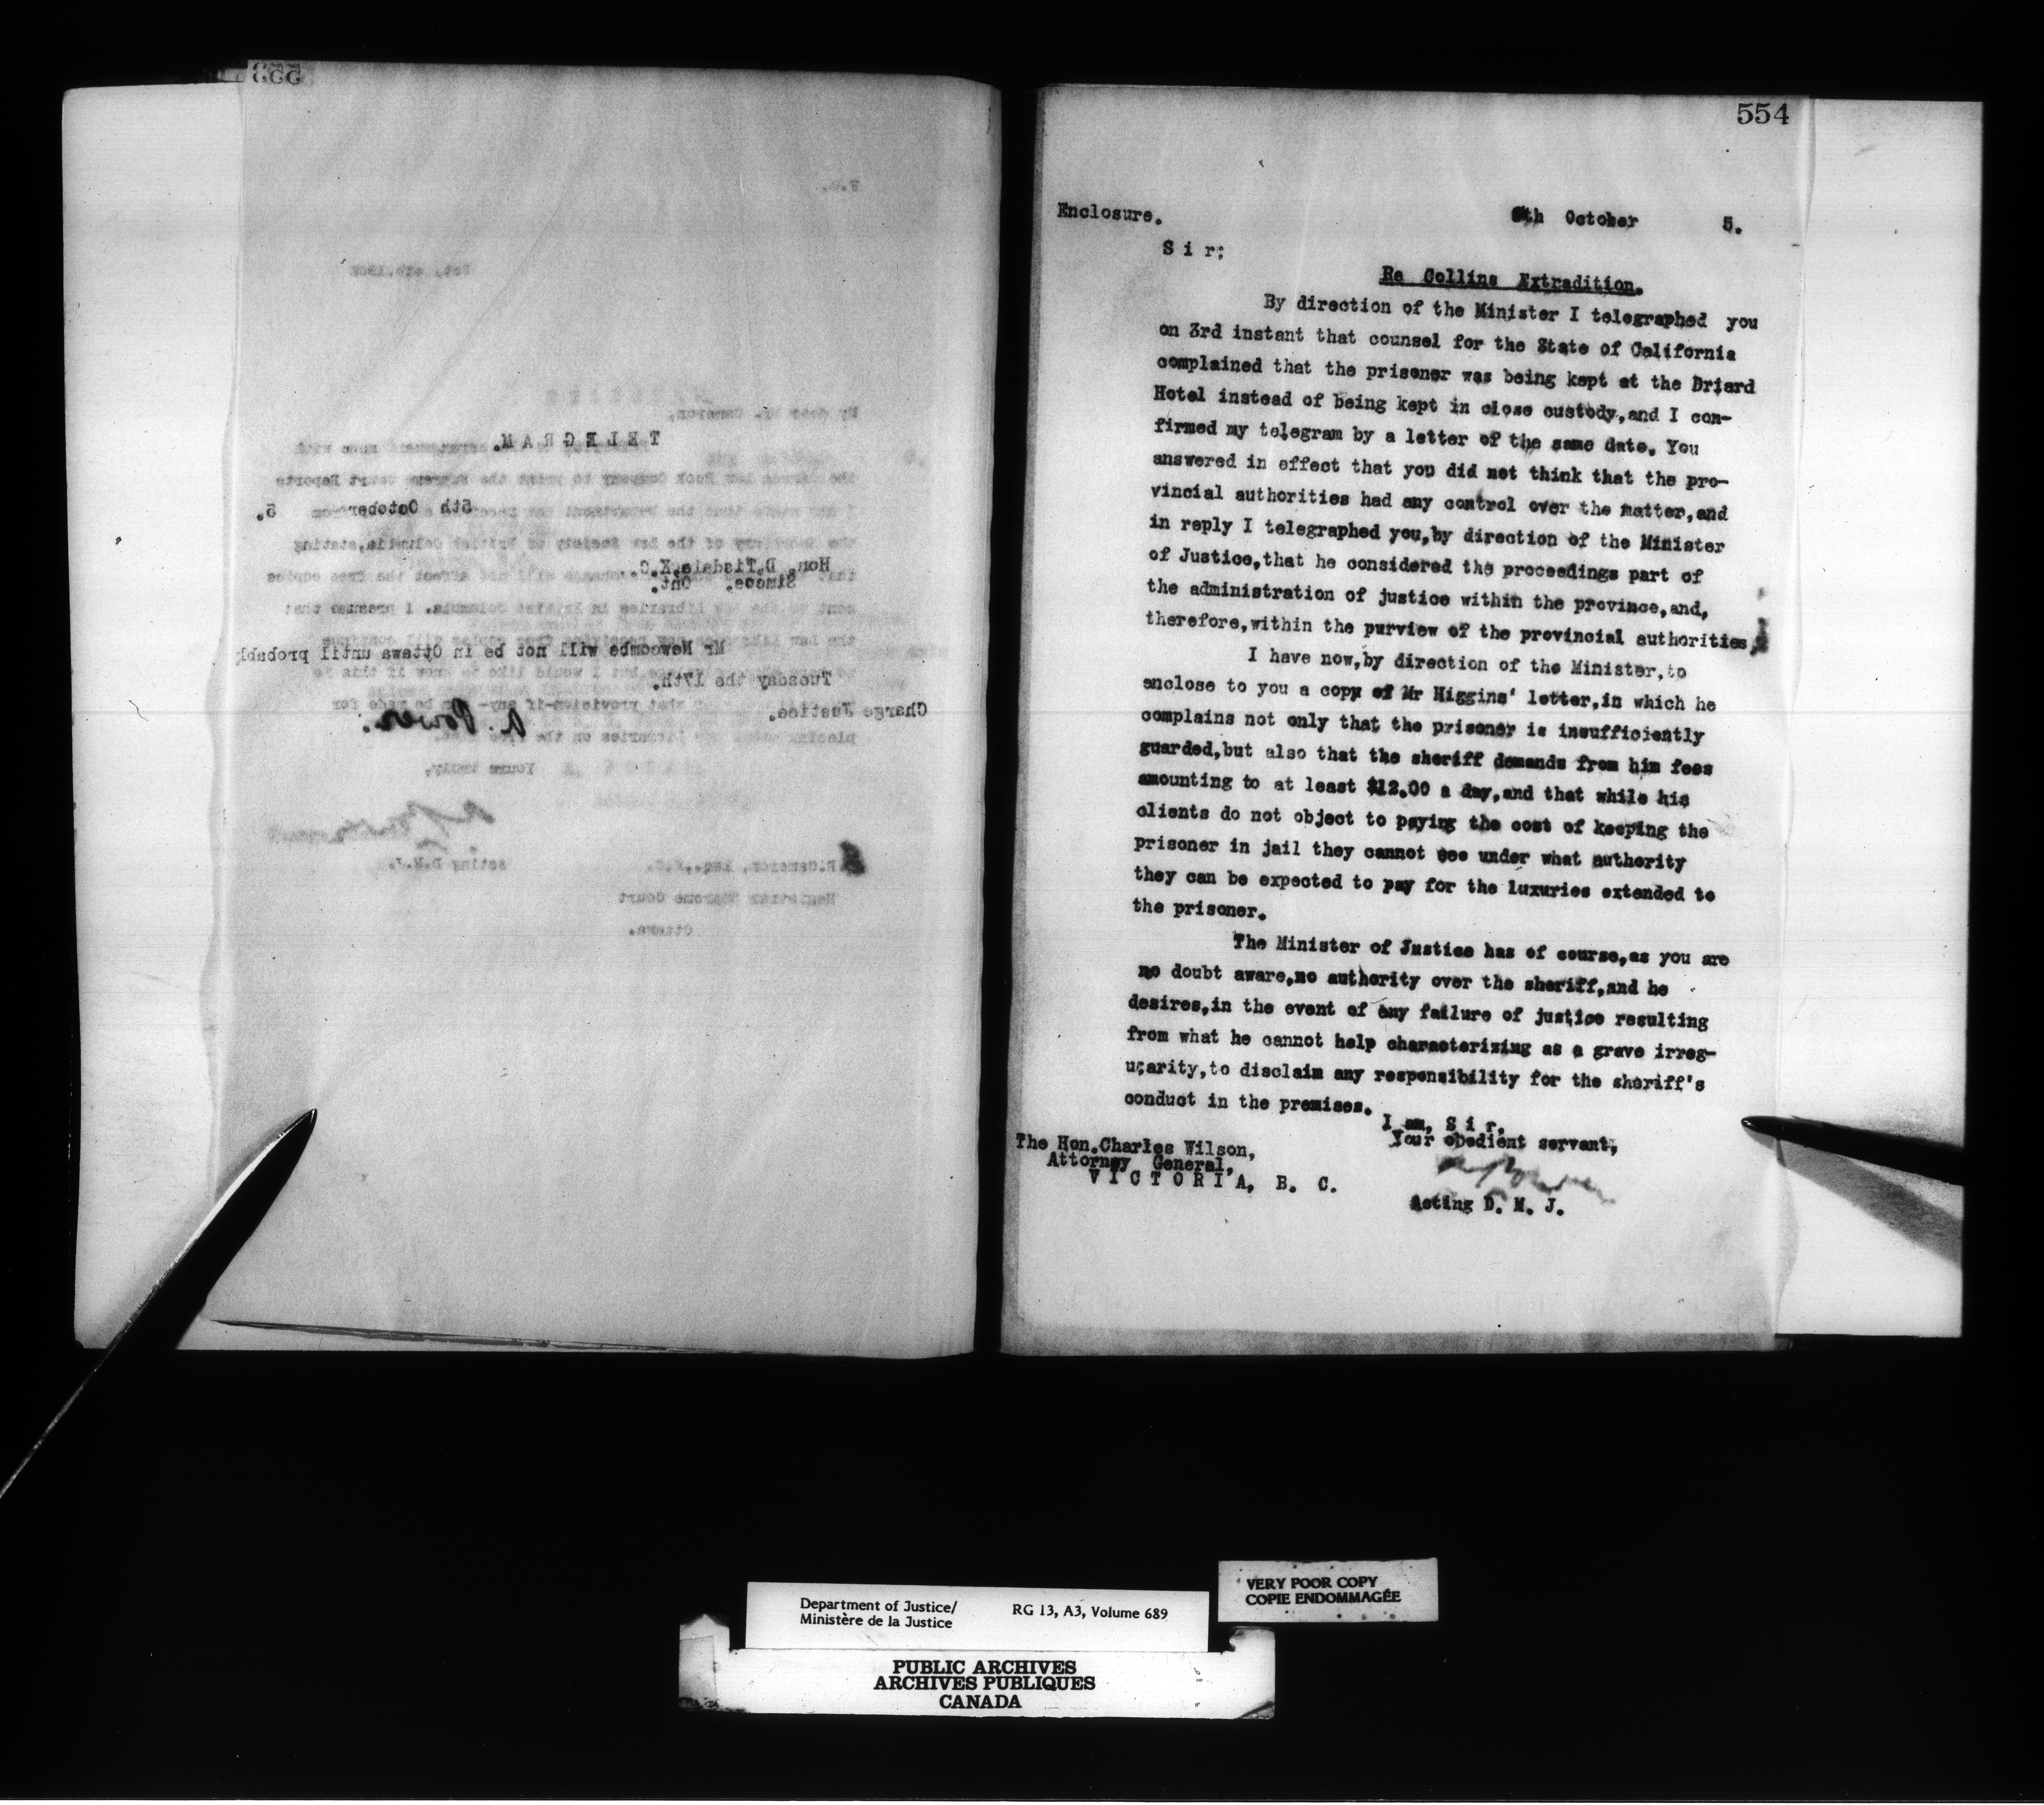 553
TELEGRAM.
5th October 5.
Hon. D. Tisdale, K.C.
Simcoe. Ont.
Mr Newcombe will not be in Ottawa until probably
Tuesday the 17th.
Charge Justice.
A. Power.
Yours truly,
Acting D.M.J.
Registrar Supreme Court
Ottawa.
554
Enclosure.
October 5.
S i r;
Re Collins Extradition.
By direction of the Minister I telegraphed you
on 3rd instant that counsel for the State of California
complained that the prisoner was being kept at the Driard
Hotel instead of being kept in close custody,and I con-
firmed my telegram by a letter of the same date. You
answered in effect that you did not think that the pro-
vincial authorities had any control over the matter,and
in reply I telegraphed you,by direction of the Minister
of Justice,that he considered the proceedings part of
the administration of justice within the province,and,
therefore,within the purview of the provincial authorities
I have now,by direction of the Minister,to
enclose to you a copy of Mr Higgins' letter,in which he
complains not only that the prisoner is insufficiently
guarded,but also that the sheriff demands from him fees
amounting to at least $12.00 a day,and that while his
clients do not object to paying the cost of keeping the
prisoner in jail they cannot see under what authority
they can be expected to pay for the luxuries extended to
the prisoner.
The Minister of Justice has of course,as you are
no doubt aware,no authority over the sheriff,and he
desires,in the event of any failure of justice resulting
from what he cannot help characterizing as a grave irreg-
ularity,to disclaim any responsibility for the sheriff's
conduct in the premises.
I am, S i r,
Your obedient servant,
The Hon.Charles Wilson,
Attorney General,
VICTORIA, B. C.
Acting D. M. J.
VERY POOR COPY
COPIE ENDOMMAGÉE
Department of Justice/
Ministère de la Justice
RG 13, A3, Volume 689
PUBLIC ARCHIVES
ARCHIVES PUBLIQUES
CANADA